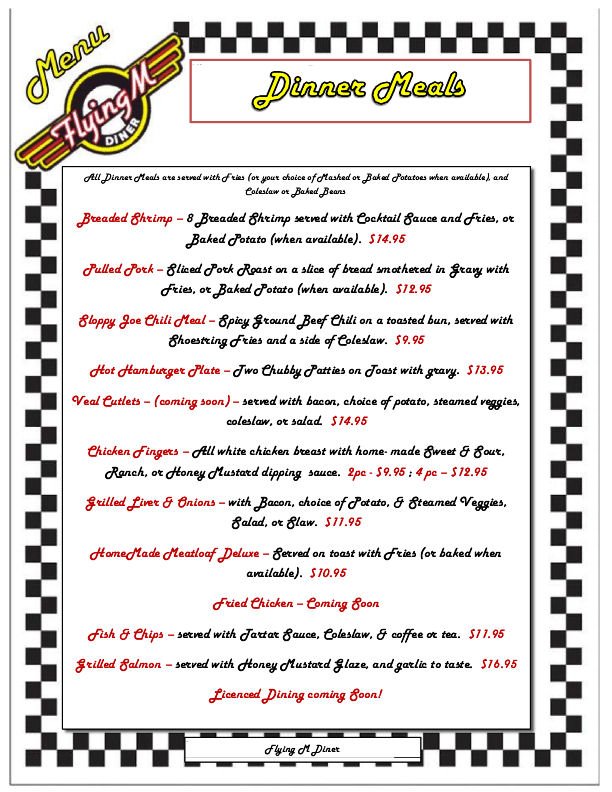 Menu
Flying M
DINER
Dinner Meals
All Dinner Meals are served with Fries (or your choice of Mashed or Baked Potatoes when available), and
Coleslaw or Baked Beans
Breaded Shrimp – 8 Breaded Shrimp served with Cocktail Sauce and Fries, or
Baked Potato (when available). $14.95
Pulled Pork – Sliced Pork Roast on a slice of bread smothered in Gravy with
Fries, or Baked Potato (when available). $12.95
Sloppy Joe Chili Meal – Spicy Ground Beef Chili on a toasted bun, served with
Shoestring Fries and a side of Coleslaw. $9.95
Hot Hamburger Plate – Two Chubby Patties on Toast with gravy. $13.95
Veal Cutlets – (coming soon) – served with bacon, choice of potato, steamed veggies,
coleslaw, or salad. $14.95
Chicken Fingers – All white chicken breast with home- made Sweet & Sour,
Ranch, or Honey Mustard dipping sauce. 2pc - $9.95 ; 4 pc – $12.95
Grilled Liver & Onions – with Bacon, choice of Potato, & Steamed Veggies,
Salad, or Slaw. $11.95
HomeMade Meatloaf Deluxe – Served on toast with Fries (or baked when
available). $10.95
Fried Chicken – Coming Soon
Fish & Chips – served with Tartar Sauce, Coleslaw, & coffee or tea. $11.95
Grilled Salmon – served with Honey Mustard Glaze, and garlic to taste. $16.95
Licenced Dining coming Soon!
Flying M Diner